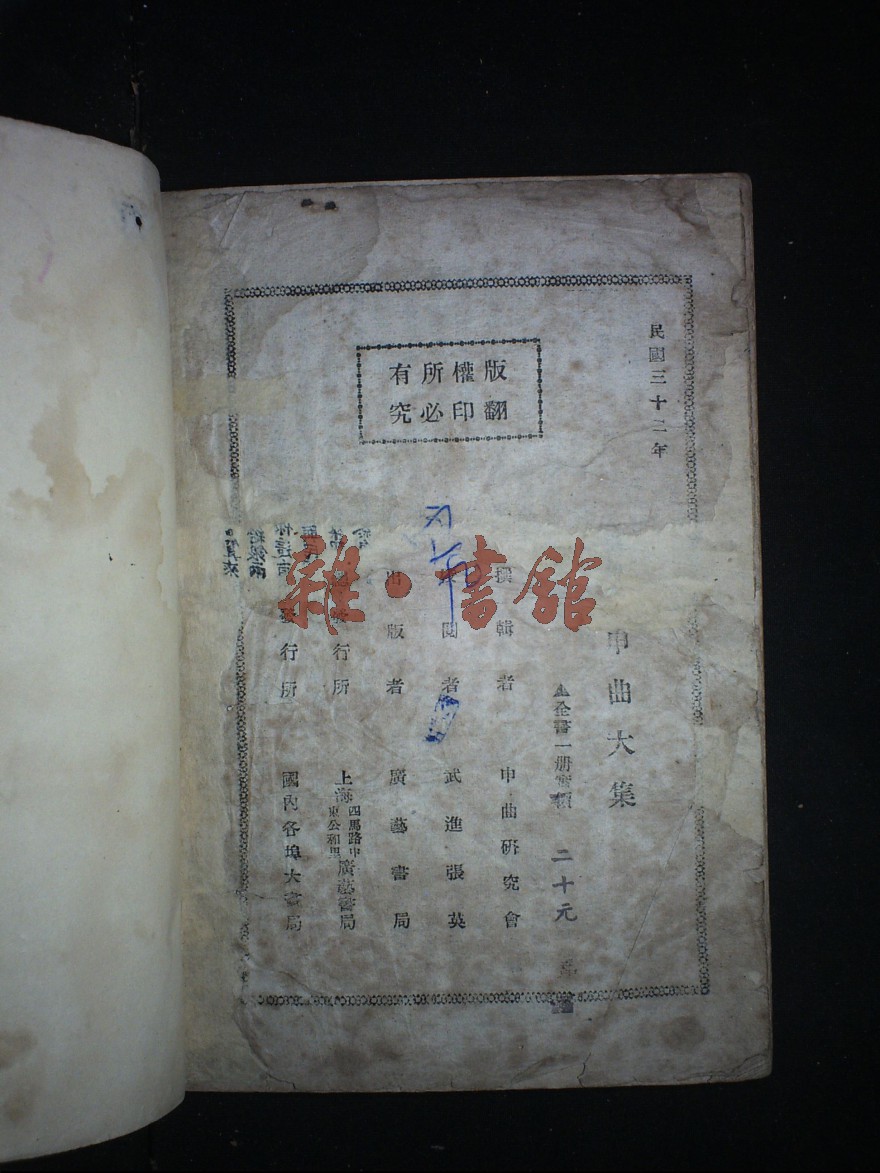 民國三十二年
版權所有
翻印必究
申曲大集
全書一册實價 二十元
撰輯者 申曲研究會
閱者 武進張英
出版者 廣藝書局
發行所 上海四馬路中東公和里廣藝書局
發行所 國內各埠大書局
雜·書館